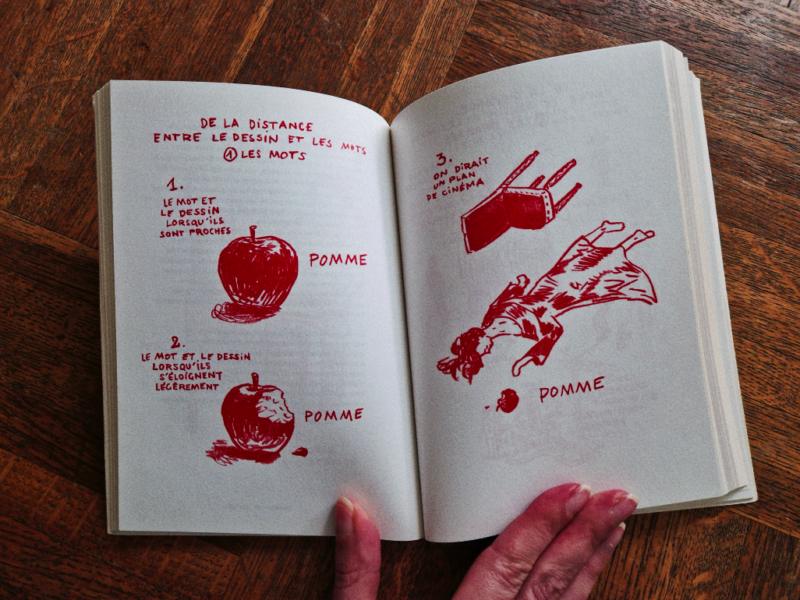 DE LA DISTANCE
ENTRE LE DESSIN ET LES MOTS
① LES MOTS
1.
LE MOT ET
LE DESSIN
LORSQU'ILS
SONT PROCHES
POMME
2.
LE MOT ET LE DESSIN
LORSQU'ILS
S'ÉLOIGNENT
LÉGÈREMENT
POMME
3.
ON DIRAIT
UN PLAN
DE CINÉMA
POMME